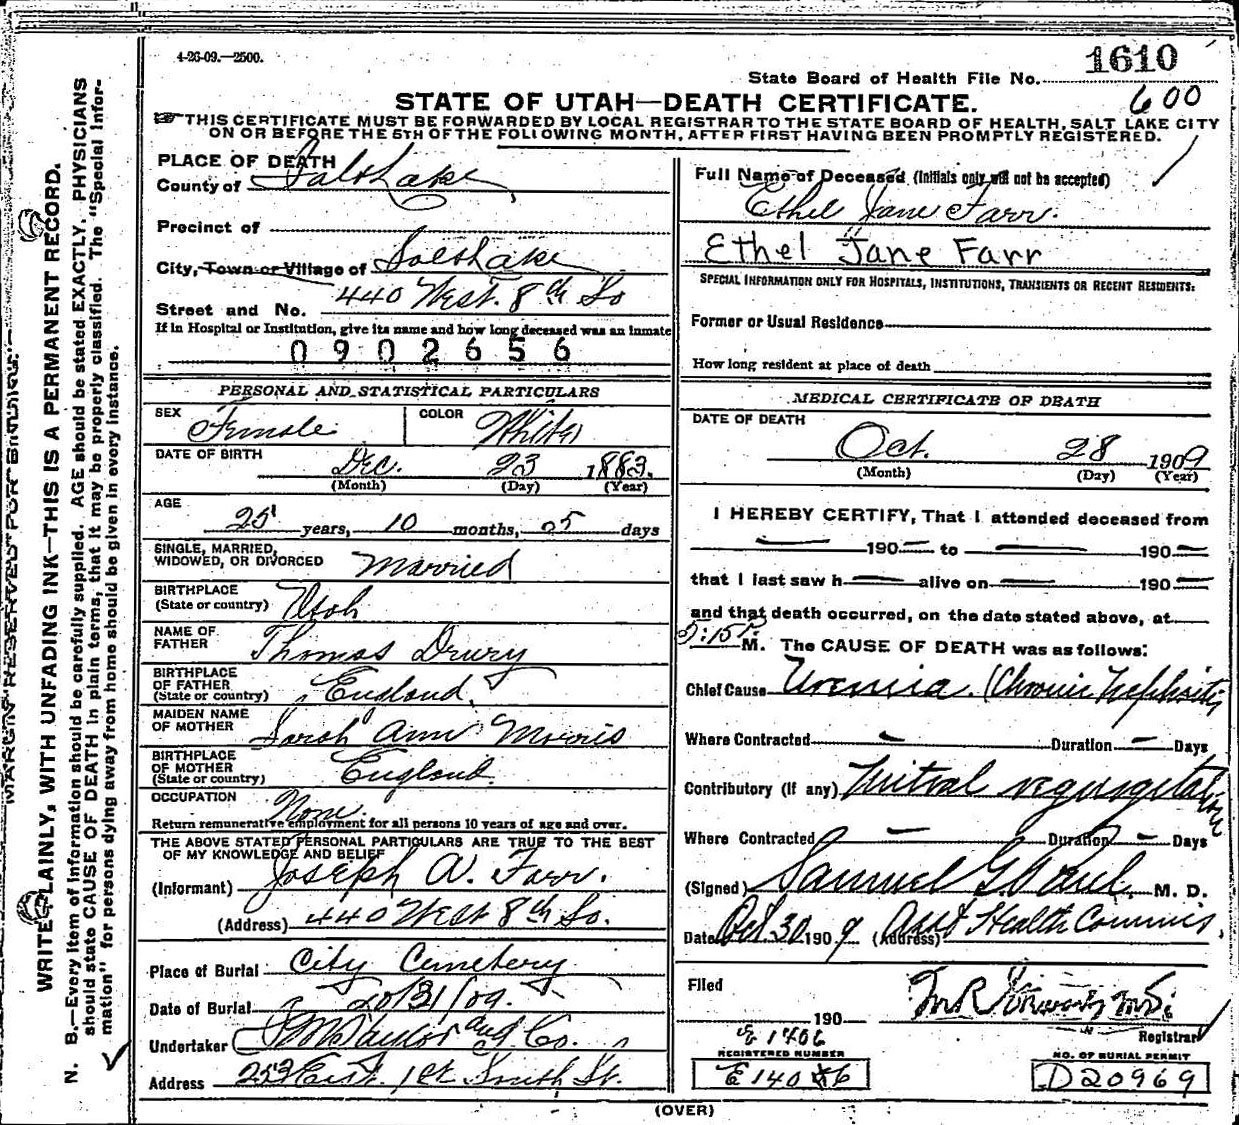 4-26-09.—2500.
1610
State Board of Health File No.
600
STATE OF UTAH—DEATH CERTIFICATE.
THIS CERTIFICATE MUST BE FORWARDED BY LOCAL REGISTRAR TO THE STATE BOARD OF HEALTH, SALT LAKE CITY
ON OR BEFORE THE 5TH OF THE FOLLOWING MONTH, AFTER FIRST HAVING BEEN PROMPTLY REGISTERED.
MARGIN RESERVED FOR BINDING.
WRITE PLAINLY, WITH UNFADING INK—THIS IS A PERMANENT RECORD.
N. B.—Every item of information should be carefully supplied. AGE should be stated EXACTLY. PHYSICIANS
should state CAUSE OF DEATH in plain terms, that it may be properly classified. The "Special Infor-
mation" for persons dying away from home should be given in every instance.
PLACE OF DEATH
County of Salt Lake
Precinct of
City, Town or Village of Salt Lake
Street and No. 440 West. 8th So
If in Hospital or Institution, give its name and how long deceased was an inmate
0902656
PERSONAL AND STATISTICAL PARTICULARS
SEX Female COLOR White
DATE OF BIRTH Dec. 23 1883.
(Month) (Day) (Year)
AGE
25 years, 10 months, 05 days
SINGLE, MARRIED,
WIDOWED, OR DIVORCED Married
BIRTHPLACE
(State or country) Utah
NAME OF
FATHER Thomas Drury
BIRTHPLACE
OF FATHER
(State or country) England
MAIDEN NAME
OF MOTHER Sarah Ann Morris
BIRTHPLACE
OF MOTHER
(State or country) England
OCCUPATION None
Return remunerative employment for all persons 10 years of age and over.
THE ABOVE STATED PERSONAL PARTICULARS ARE TRUE TO THE BEST
OF MY KNOWLEDGE AND BELIEF
(Informant) Joseph W. Farr.
(Address) 440 West 8th So.
Place of Burial City Cemetery
Date of Burial 10/31/09.
Undertaker S. M. Taylor and Co.
Address 253 East. 1st South St.
Full Name of Deceased (Initials only will not be accepted)
Ethel Jane Farr.
Ethel Jane Farr
SPECIAL INFORMATION ONLY FOR HOSPITALS, INSTITUTIONS, TRANSIENTS OR RECENT RESIDENTS:
Former or Usual Residence
How long resident at place of death
MEDICAL CERTIFICATE OF DEATH
DATE OF DEATH
Oct. 28 1909
(Month) (Day) (Year)
I HEREBY CERTIFY, That I attended deceased from
190 to 190
that I last saw h alive on 190
and that death occurred, on the date stated above, at
:15 P M. The CAUSE OF DEATH was as follows:
Chief Cause Uremia. (Chronic Nephritis
Where Contracted — Duration — Days
Contributory (if any) Mitral regurgitation
Where Contracted — Duration — Days
(Signed) Samuel G. Paul M. D.
Date Oct. 30. 190 9 (Address) Asst Health Commis.
Filed
190 M. D.
Registrar
E 1406
REGISTERED NUMBER
NO. OF BURIAL PERMIT
D20969
(OVER)